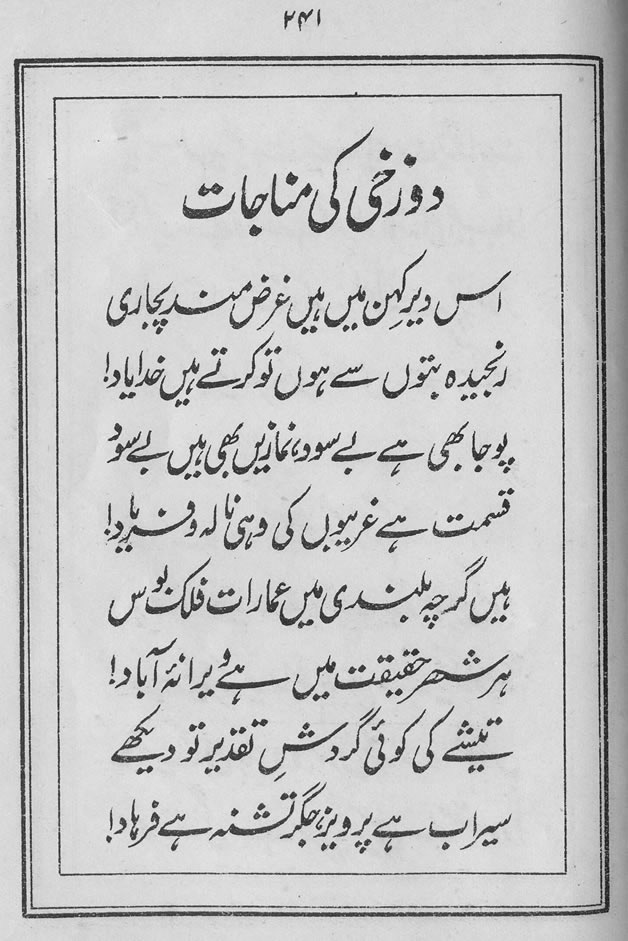 ۲۴۱
دوزخی کی مناجات
اس دیرِ کہن میں ہیں غرض مند پجاری
رنجیدہ بتوں سے ہوں تو کرتے ہیں خدا یاد!
پوجا بھی ہے بے سود، نمازیں بھی ہیں بے سود
قسمت ہے غریبوں کی وہی نالہ و فریاد!
ہیں گرچہ بلندی میں عمارات فلک بوس
ہر شہر حقیقت میں ہے ویرانۂ آباد!
تیشے کی کوئی گردشِ تقدیر تو دیکھے
سیراب ہے پرویز، جگر تشنہ ہے فرہاد!